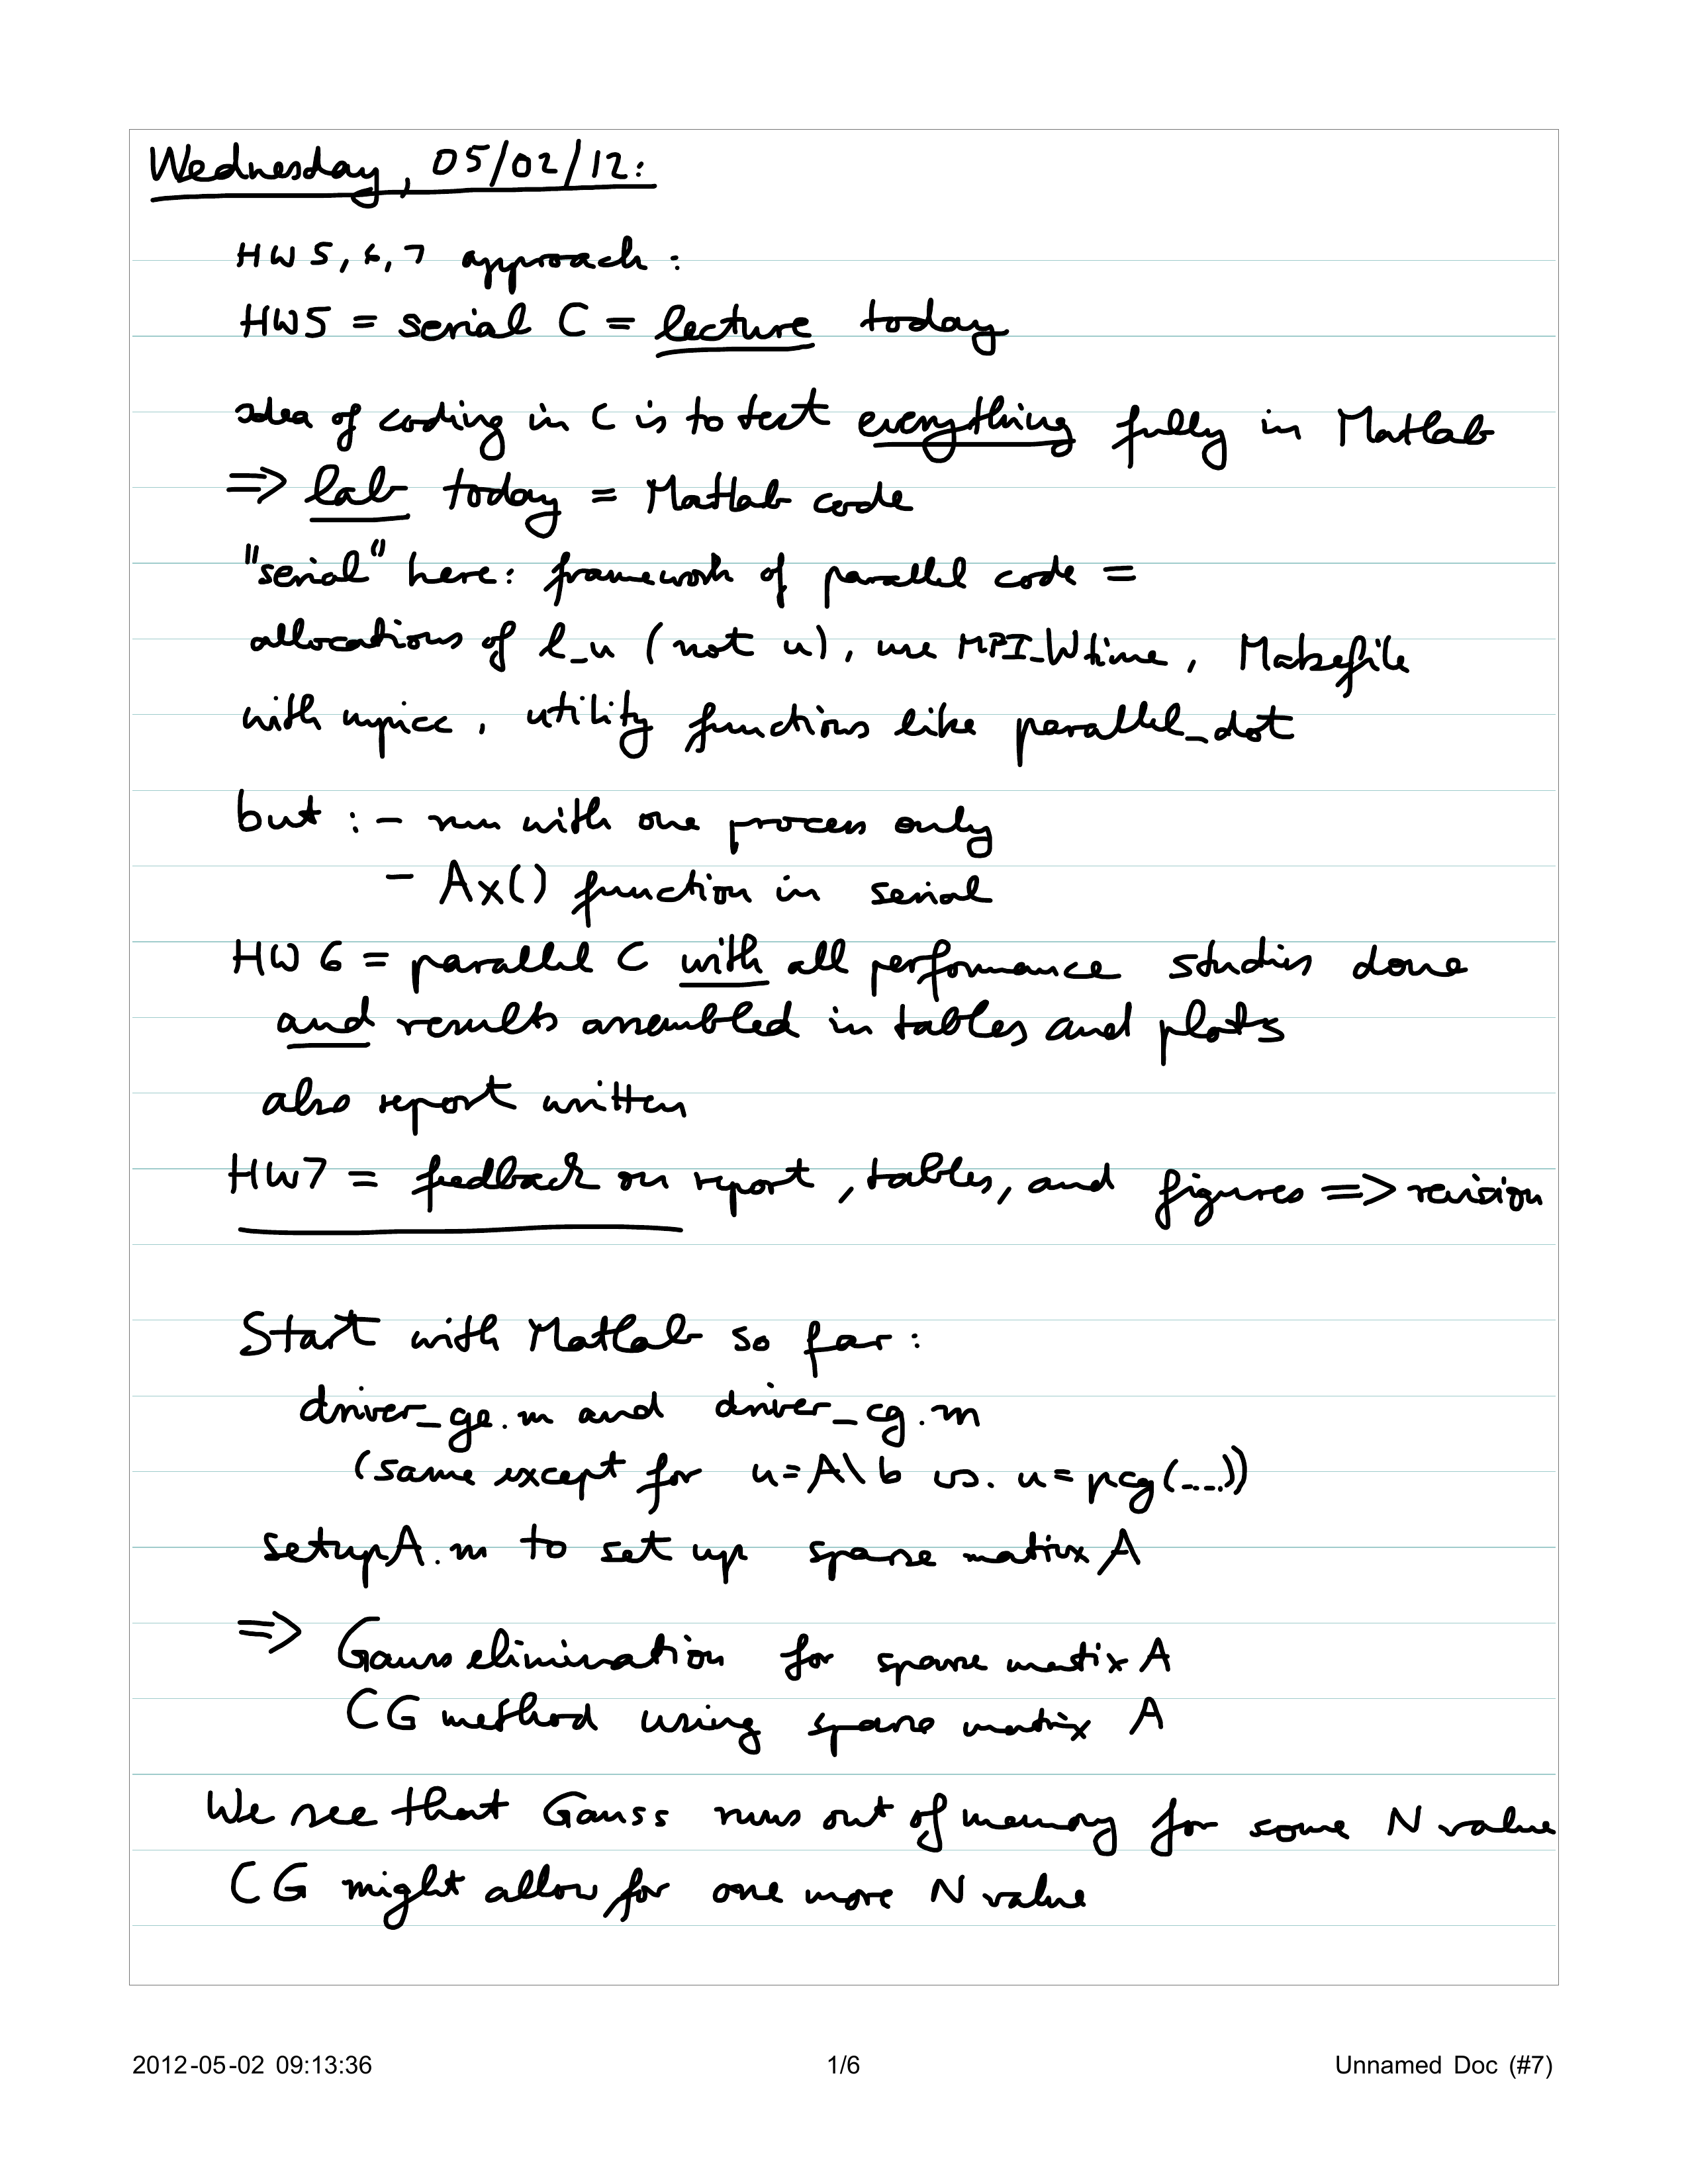 Wednesday, 05/02/12:
HW 5, 6, 7 approach:
HW5 = serial C = lecture today
idea of coding in C is to test everything fully in Matlab
=> lab today = Matlab code
"serial" here: framework of parallel code =
allocations of l_u (not u), use MPI_Wtime, Makefile
with mpicc, utility functions like parallel_dot
but : - run with one process only
- Ax() function in serial
HW 6 = parallel C with all performance studies done
and results assembled in tables and plots
also report written
HW7 = feedback on report, tables, and figures => revision
Start with Matlab so far:
driver_ge.m and driver_cg.m
(same except for u=A\b vs. u=pcg(....))
setupA.m to set up sparse matrix A
=> Gauss elimination for sparse matrix A
CG method using sparse matrix A
We see that Gauss runs out of memory for some N value
CG might allow for one more N value
2012-05-02 09:13:36 1/6 Unnamed Doc (#7)